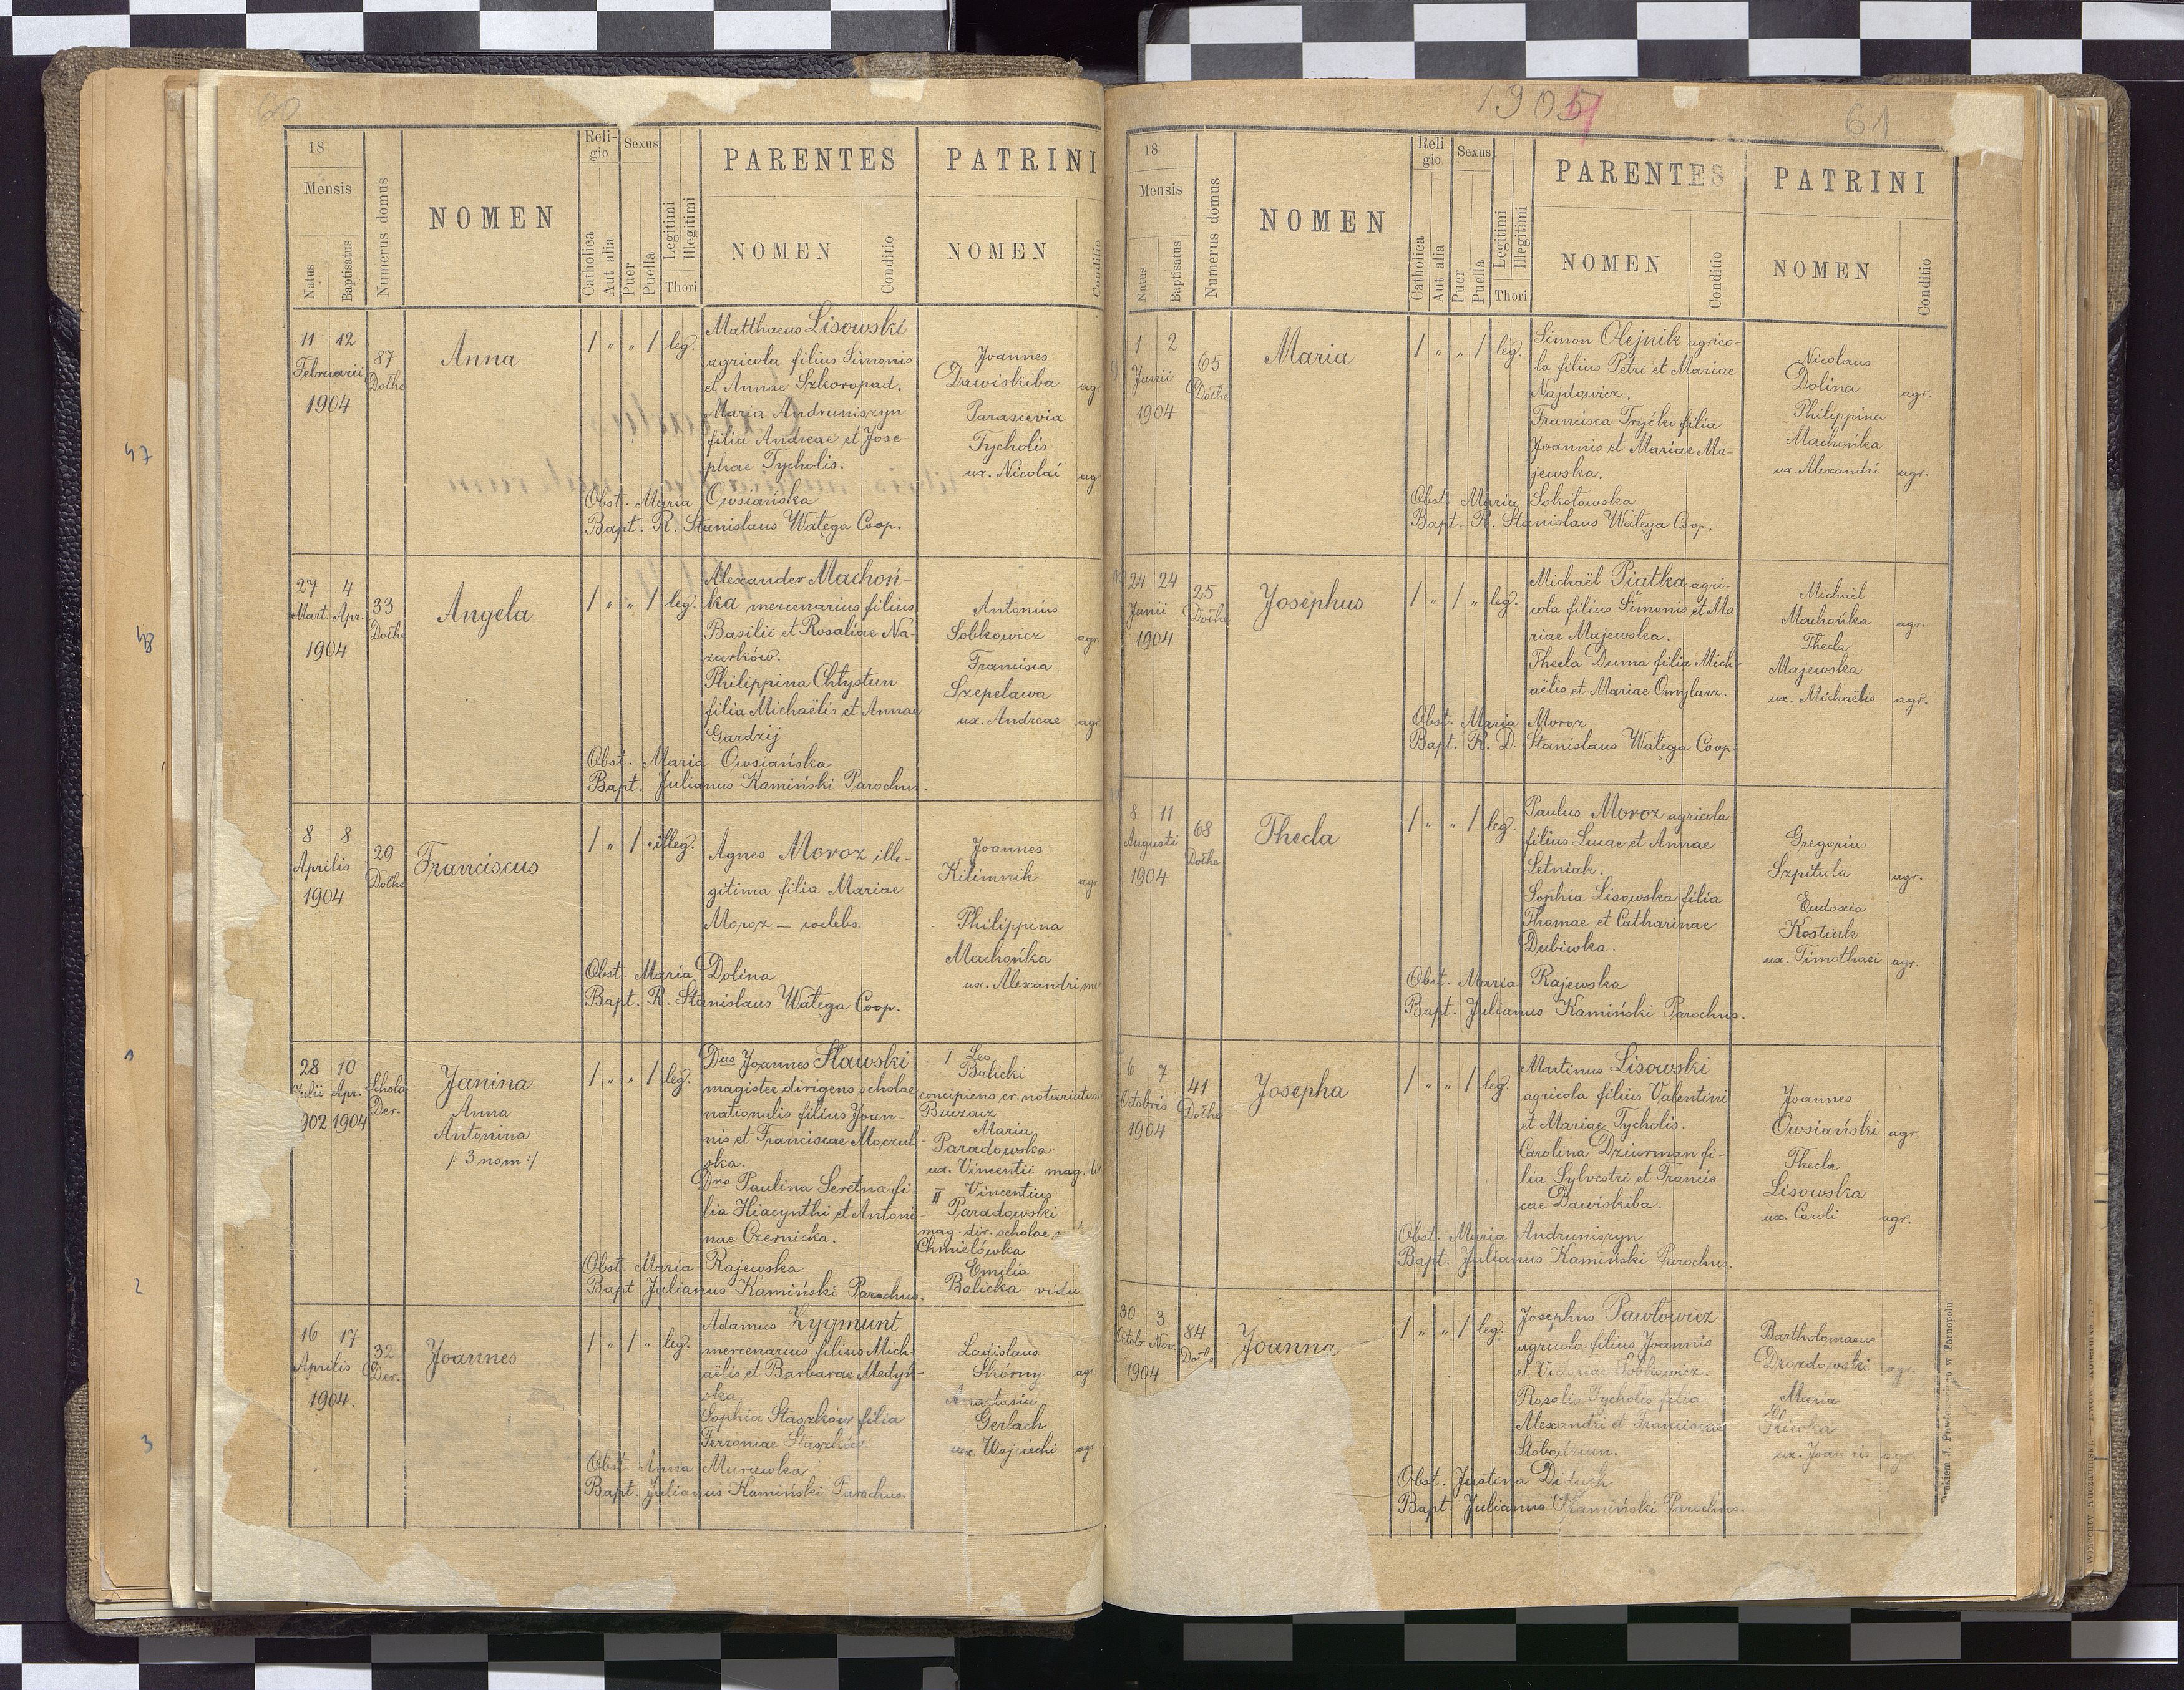 60
18
Mensis
Natus
Baptisatus
Numerus domus
NOMEN
Reli-
gio
Catholica
Aut alia
Sexus
Puer
Puella
Legitimi
Illegitimi
Thori
PARENTES
NOMEN
Conditio
PATRINI
NOMEN
Conditio
11 12
Februarii
1904
87
Dołhe
Anna
1 " " 1 leg.
Matthaeus Lisowski
agricola filius Simonis
et Annae Szkoropad.
Maria Andruniszyn
filia Andreae et Jose-
phae Tycholis.
Obst. Maria Owsiańska
Bapt. R. Stanislaus Wałęga Coop.
Joannes
Dawiskiba agr
Parascevia
Tycholis
ux. Nicolai ag
27 4
Mart. Apr.
1904
33
Dołhe
Angela
1 " " 1 leg.
Alexander Machoń-
ka mercenarius filius
Basilii et Rosaliae Na-
zarków.
Philippina Chłystun
filia Michaëlis et Annae
Gardzij
Obst. Maria Owsiańska
Bapt. Julianus Kamiński Parochus.
Antonius
Sobkowicz agr
Francisca
Szepelawa
ux. Andreae agr
8 8
Aprilis
1904
29
Dołhe
Franciscus
1 " 1 " illeg.
Agnes Moroz ille-
gitima filia Mariae
Moroz — coelebs.
Obst. Maria Dolina
Bapt. R. Stanislaus Wałęga Coop.
Joannes
Kilimnik agr
Philippina
Machońka
ux. Alexandri me
28 10
Julii Apr.
902 1904
Schola
Der.
Janina
Anna
Antonina
/: 3 nom :/
1 " " 1 leg.
Dnus Joannes Sławski
magister dirigens scholae
nationalis filius Joan-
nis et Franciscae Moczul-
ska.
Dna Paulina Seretna fi-
lia Hiacynthi et Antoni-
nae Czernicka.
Obst. Maria Rajewska
Bapt Julianus Kamiński Parochus.
I Leo
Balicki
concipiens cr. notariatus
Buczacz
Maria
Paradowska
ux. Vincentii mag. di
II Vincentius
Paradowski
mag. dir. scholae
Chmielówka
Emilia
Balicka vidu
16 17
Aprilis
1904.
32
Der.
Joannes
1 " 1 " leg.
Adamus Zygmunt
mercenarius filius Mich-
aëlis et Barbarae Medyń-
ska.
Sophia Staszków filia
Ferroniae Staszków
Obst Anna Murawka
Bapt. Julianus Kamiński Parochus.
Ladislaus
Skórny agr
Anastasia
Gerlach
ux. Wojciechi agr
1905
61
18
Mensis
Natus
Baptisatus
Numerus domus
NOMEN
Reli
gio
Catholica
Aut alia
Sexus
Puer
Puella
Legitimi
Illegitimi
Thori
PARENTES
NOMEN
Conditio
PATRINI
NOMEN
Conditio
1 2
Junii
1904
65
Dołhe
Maria
1 " " 1 leg.
Simon Olejnik agrico-
la filius Petri et Mariae
Najdowicz.
Francisca Tryćko filia
Joannis et Mariae Ma-
jewska.
Obst. Maria Sokołowska
Bapt. R. Stanislaus Wałęga Coop.
Nicolaus
Dolina agr.
Philippina
Machońka
ux. Alexandri agr.
24 24
Junii
1904
25
Dołhe
Josephus
1 " 1 " leg.
Michaël Piątka agri-
cola filius Simonis et Ma
riae Majewska.
Thecla Duma filia Mich-
aëlis et Mariae Omylarz.
Obst. Maria Moroz
Bapt. R. D. Stanislaus Wałęga Coop.
Michaël
Machońka agr.
Thecla
Majewska
ux. Michaëlis agr.
8 11
Augusti
1904
68
Dołhe
Thecla
1 " " 1 leg.
Paulus Moroz agricola
filius Lucae et Annae
Letniak.
Sophia Lisowska filia
Thomae et Catharinae
Dubiwka.
Obst. Maria Rajewska
Bapt. Julianus Kamiński Parochus.
Gregorius
Szpituła agr.
Eudoxia
Kostiuk
ux. Timothaei agr.
6 7
Octobris
1904
41
Dołhe
Josepha
1 " " 1 leg.
Martinus Lisowski
agricola filius Valentini
et Mariae Tycholis.
Carolina Dziurman fi-
lia Sylvestri et Francis
cae Dawiskiba.
Obst. Maria Andruniszyn
Bapt. Julianus Kamiński Parochus.
Joannes
Owsiański agr.
Thecla
Lisowska
ux. Caroli agr.
30 3
Octobr. Nov.
1904
84
Dołhe
Joanna
1 " " 1 leg.
Josephus Pawłowicz
agricola filius Joannis
et Victoriae Sobkowicz.
Rosalia Tycholis filia
Alexandri et Franciscae
Słobodzian.
Obst. Justina Diduch
Bapt. Julianus Kamiński Parochus.
Bartholomaeus
Drozdowski agr.
Maria
ux. Joannis agr.